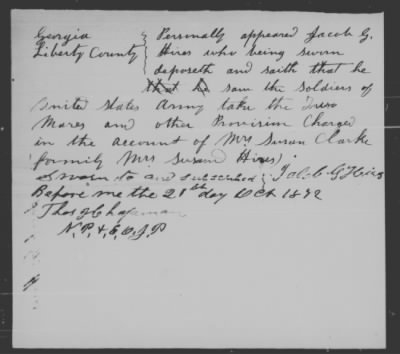 Georgia } Personally appeared Jacob G.
Liberty County } Hires who being sworn
deposeth and saith that he
that he saw the Soldiers of
United States Army take the
Mares and other Provision Charged
in the account of Mrs Susan Clarke
formily Mrs Susan Hires)
Sworn to and subscribed } Jacob G Hires
Before me the 21st day Oct 1872
Thos J Chapman
N.P. & E.O.J.P